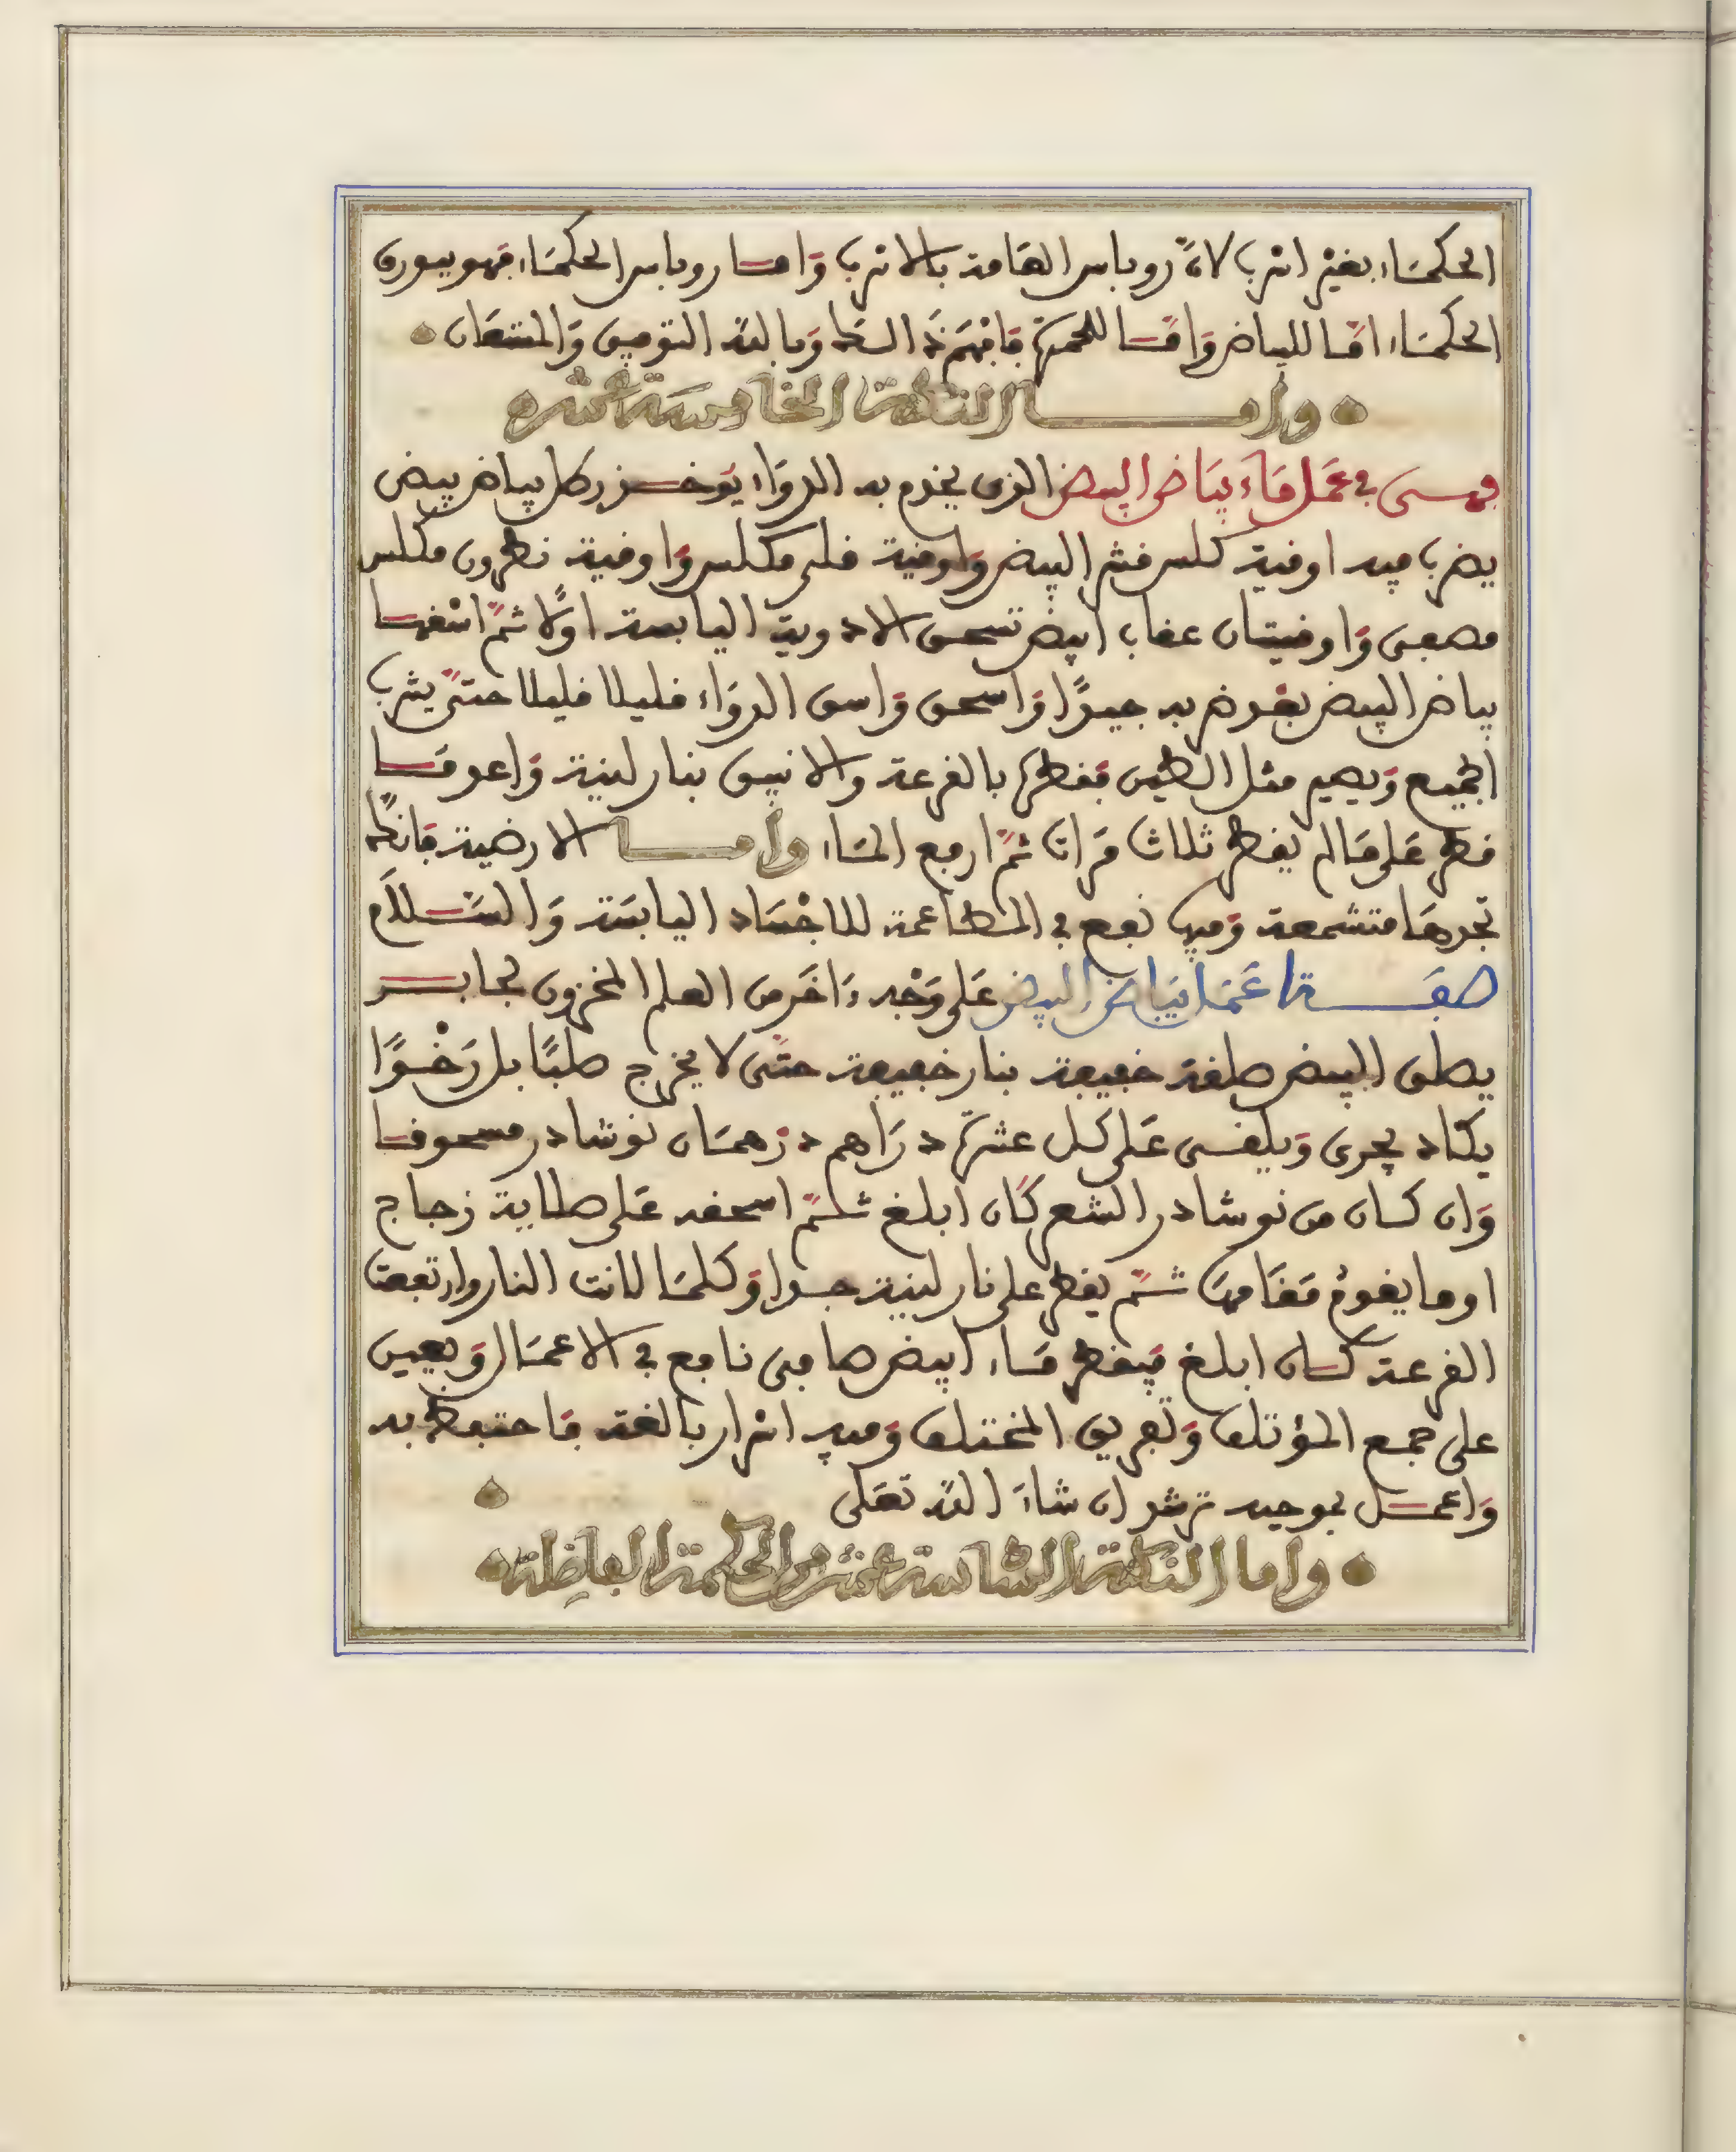 الحكمَاء بغيْر اسرب لانّ روباس العَامة بالاسرب وَامّا روباس الحكمَاء فهو بيوريّ
الحكمَاء امّا للبياض وَامّا للحمرة فافهَم ذَالك وَبالله التوفيق وَالمستعَان
وامـا النكتة الخامسة عشرة
فهـي في عَمَل مَاء بيَاض البيض الذى يخدم به الدوَاء يؤخـذ رطل بياض بيض
يضرب فيه اوقية كلس قشر البيض وَاوقية قلى مكلس وَاوقية نطرون مكلس
مصعى وَاوقيتان عقاب ابيض تسحق الادوية اليابسة اولًا ثمّ اسقهـا
بياض البيض بعوض به جيدًا وَاسحق وَاسق الدوَاء قليلا قليلا حتىّ يشرب
الجميع وَيصير مثل الطين فقطرها بالقرعة والانبيق بنار لينة وَاعد مَا
قطر عَلى مَا لم يقطر ثلاث مَرات ثمّ ارفع المَاء وامـا الارضية فانك
تجدهَا متشمعة وَفيها نفع في المطاعمة للاجْسَاد اليابسَة وَالسّـلَام
صفـة عَمَل بيَاض البيض عَلى وَجْه ءَاخَر من العلم المخزون لجابـر
يطلق البيض صلقة خفيفة بنار خفيفة حتّى لا يخرج صلبًا بل رَخْـوًا
يكاد يجرى وَيلقـى عَلى كل عشرة دراهم درهمَان نوشادر مسحوقـا
وَان كان من نوشادر الشعر كَان ابلغ ثـمّ اسحقه عَلى صلاية زجاج
او ما يقومُ مَقَامهَا ثـمّ يقطر على نار لينة جـدا وَكلمَا لانت النار وارتفعت
القرعة كـان ابلغ فيقطر مَـاء ابيض صافى نافع في الاعمَال وَيعين
على جمع المؤتلف وَتفريق المختلف وَفيه اسرار بالغة فاحتفظ به
وَاعمـل بموجبه ترشد ان شاءَ الله تعَلى
واما النكتة السادسة عشر من الحكمة الفاضلة